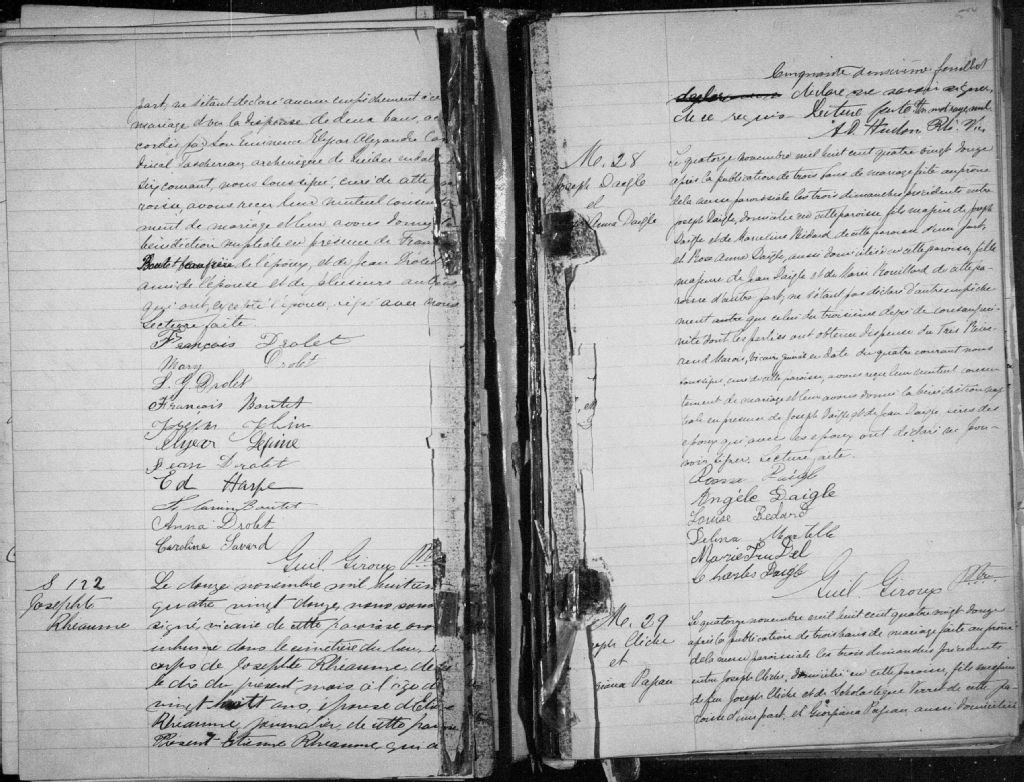 part, ne s'étant déclaré aucun empêchement à ce
mariage et vu la dispense de deux bans, ac
cordée par Son Eminence Elzéar Alexandre Car
dinal Taschereau archevêque de Québec en date
six courant, nous soussigné, curé de cette pa
roisse, avons reçu leur mutuel consen
ment de mariage et leur avons donné
bénédiction nuptiale en présence de Fran
Boutet de l'époux, et de Jean Drolet
ami de l'épouse et de plusieurs autres
qui ont, excepté l'épouse, signé avec nous
Lecture faite.
François Drolet
Mary Drolet
J. Drolet
François Boutet
Joseph
Lépine
Jean Drolet
Ed Harpe
Boutet
Anna Drolet
Caroline Savard
Guil Giroux Ptre
S 122
Josephte
Rhéaume
Le douze novembre mil huit cen
quatre vingt douze, nous sous
signé, vicaire de cette paroisse avons
inhumé dans le cimetière du lieu, le
corps de Josephte Rhéaume décé
le dix du présent mois à l'âge de
vingt ans, épouse d'Etien
Rhéaume journalier de cette paroi
Présent Etienne Rhéaume qui a
Cinquante deuxième feuillet
déclaré ne savoir signer,
de ce requis Lecture faite Un mot rayé nul
Ptre Vic.
M. 28
Joseph Daigle
et
Anna Daigle
Le quatorze novembre mil huit cent quatre vingt douze
après la publication de trois bans de mariage faite au prône
de la messe paroissiale les trois dimanches précédents entre
Joseph Daigle, domicilié en cette paroisse fils majeur de Joseph
Daigle et de Marceline Bédard de cette paroisse d'une part,
et Rose Anna Daigle, aussi domiciliée en cette paroisse, fille
majeure de Jean Daigle et de Marie Rouillard de cette pa-
roisse d'autre part, ne s'étant pas déclaré d'autre empêche
ment autre que celui du troisième degré de consangui-
nité dont les parties ont obtenu dispense du Très Révé-
rend Marois, Vicaire général en date du quatre courant nous
soussigné, curé de cette paroisse, avons reçu leur mutuel consen
tement de mariage et leur avons donné la bénédiction nup
tiale en présence de Joseph Daigle et de Jean Daigle pères des
époux qui avec les époux ont déclaré ne pou-
voir signer. Lecture faite.
Daigle
Angèle Daigle
Louise Bedard
Delima
Marie Trudel
Charles Daigle
Guil. Giroux Ptre.
M. 29
Joseph Cliche
et
Papau
Le quatorze novembre mil huit cent quatre vingt douze
après la publication de trois bans de mariage faite au prône
de la messe paroissiale les trois dimanches précédents
entre Joseph Cliche, domicilié en cette paroisse, fils majeur
de feu Joseph Cliche et de Scholastique Verret de cette pa-
roisse d'une part, et Georgiana Papau, aussi domiciliée